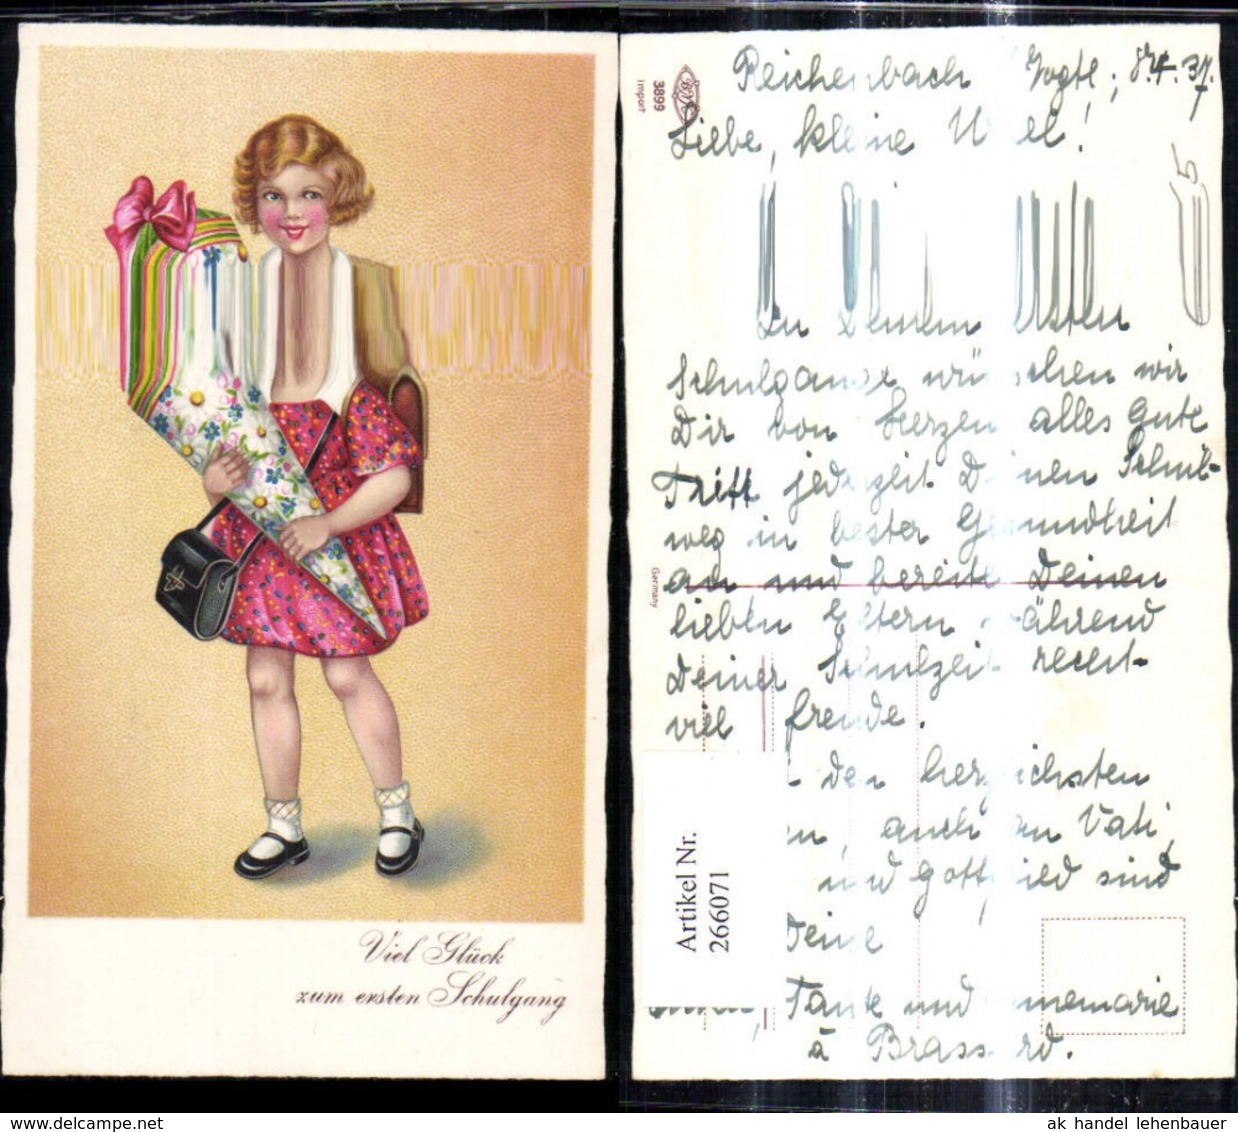 Viel Glück
zum ersten Schulgang
3899
Import
Germany
Reichenbach Vogtl; 8.4.37.
Liebe, kleine
5
Zu Deinem ersten
Schulgange wünschen wir
Dir von Herzen alles Gute
Tritt jederzeit Deinen Schul-
weg in bester Gesundheit
an und bereite Deinen
lieben Eltern während
Deiner Schulzeit recht
viel Freude.
den herzlichsten
auch an Vati,
und Gottfried sind
Deine
Tante und
Artikel Nr.
266071
ak handel lehenbauer